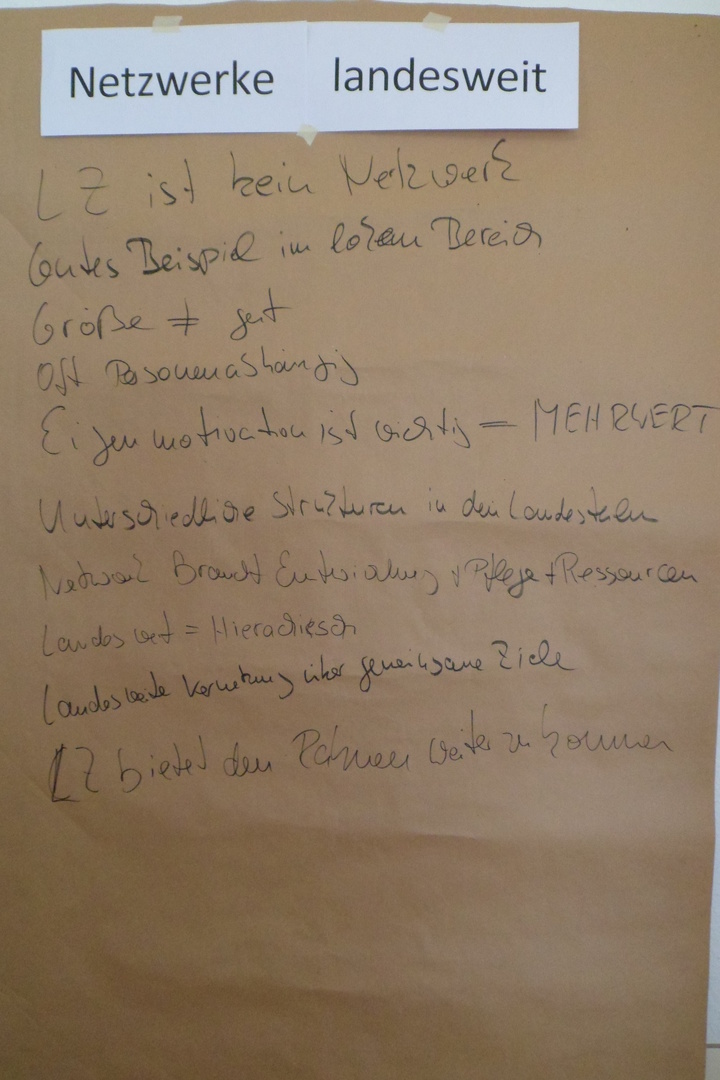 Netzwerke landesweit
LZ ist kein Netzwerk
Gutes Beispiel im lokalen Bereich
Größe ≠ gut
Oft Personenabhängig
Eigenmotivation ist wichtig = MEHRWERT
Unterschiedliche Strukturen in den Landesteilen
Netzwerk Braucht Entwicklung + Pflege + Ressourcen
Landesweit = Hierachiesch
Landesweite Vernetzung über gemeinsame Ziele
LZ bietet den Rahmen weiter zu kommen